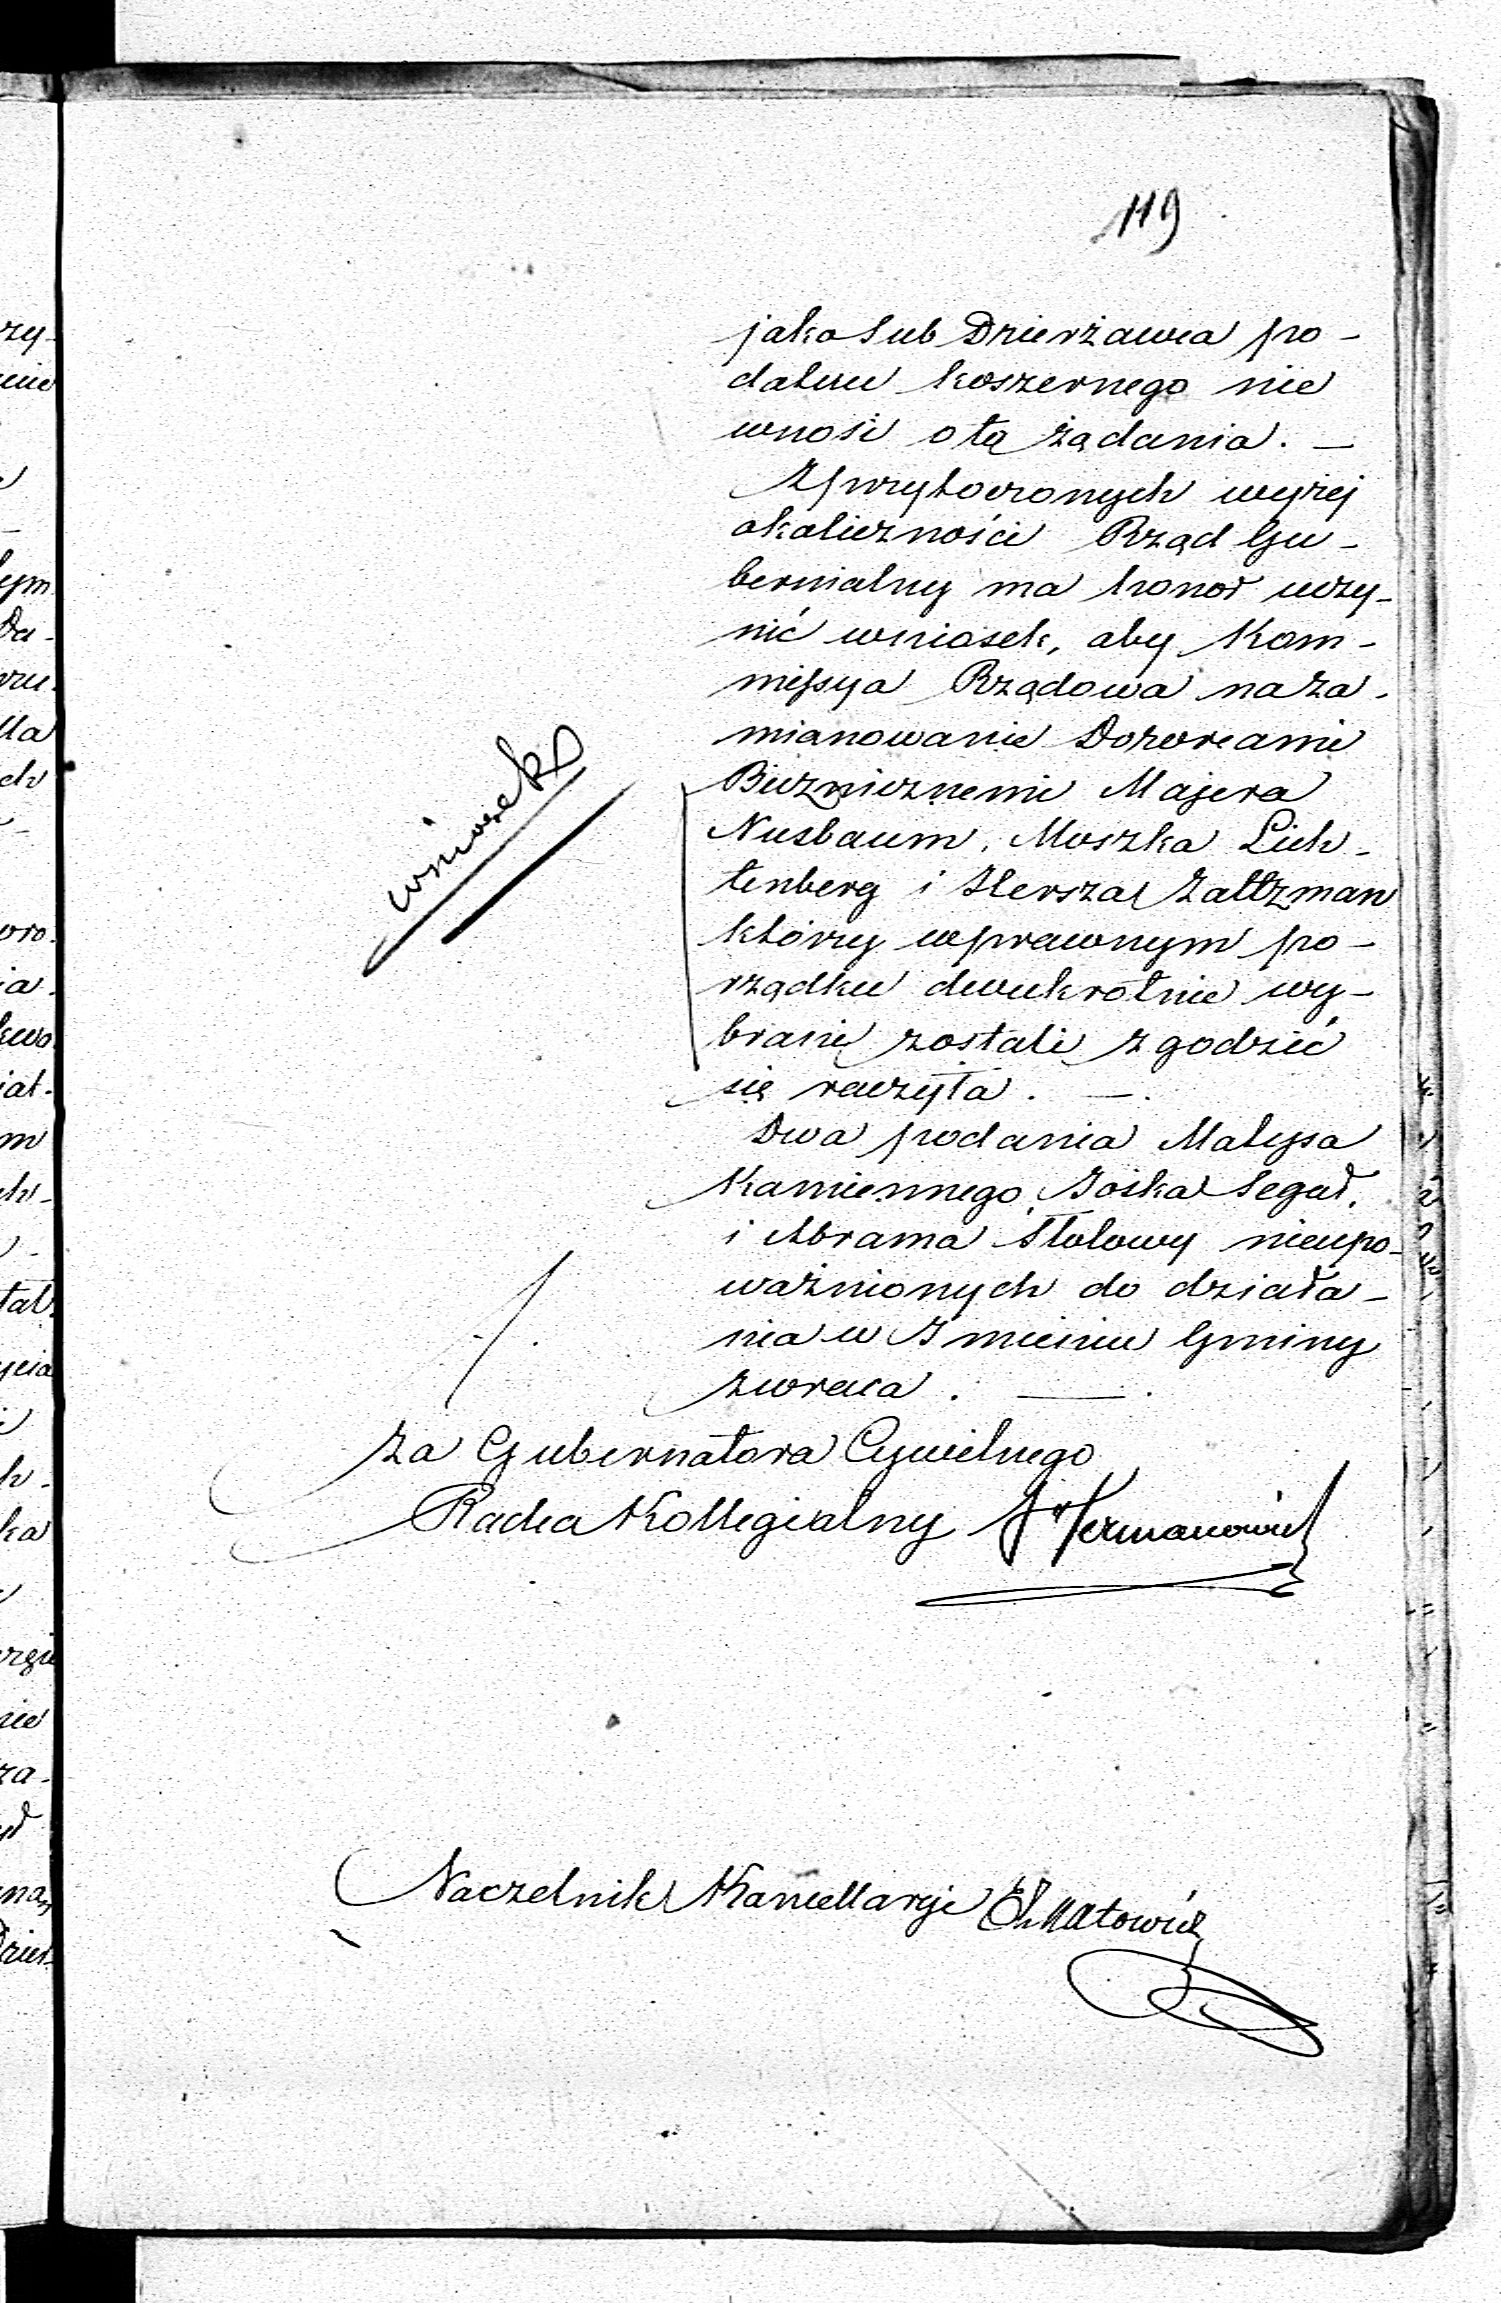 119
jako Sub Dzierżawca po-
datku koszernego nie
wnosi o tą żądania. —
Z przytoczonych wyżej
okoliczności Rząd Gu-
bernialny ma honor uczy-
nić wniosek, aby Kom-
missya Rządowa na za-
mianowanie Dozorcami
Bużnicznemi Majera
Nusbaum, Moszka Lich-
tenberg i Hersza Zaltzman
którzy w prawnym po-
rządku dwukrotnie wy-
brani zostali zgodzić
się raczyła. —
wniosek
Dwa podania Matysa
Kamiennego, Joska Segał,
i Abrama Stolowy nieupo-
ważnionych do działa-
nia w Imieniu Gminy
zwraca. —
Za Gubernatora Cywilnego
Radca Kollegialny Hermanowicz
Naczelnik Kancellaryi